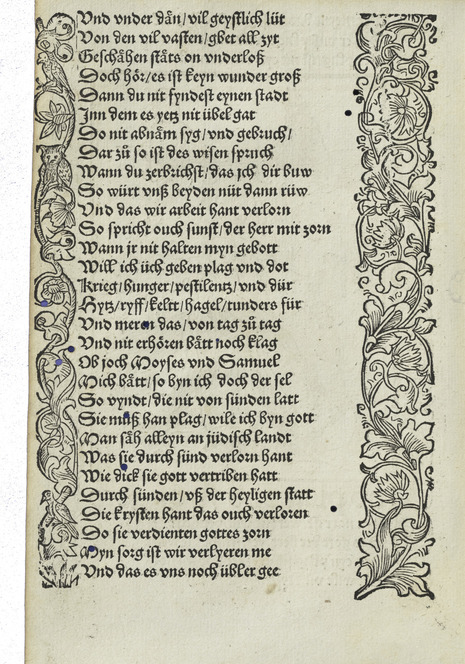 Vnd vnder dān/ vil geystlich lüt
Von den vil vasten/ gbet all zyt
Geschähen stäts on vnderloß
Doch hör/ es ist keyn wunder groß
Dann du nit fyndest eynen stadt
Jnn dem es yetz nit übel gat
Do nit abnäm syg/ vnd gebruch/
Dar zů so ist des wisen spruch
Wann du zerbrichst/ das jch dir buw
So würt vnß beyden nüt dann rüw
Vnd das wir arbeit hant verlorn
So spricht ouch sunst/ der herr mit zorn
Wann jr nit halten myn gebott
Will ich üch geben plag vnd dot
Krieg/ hunger/ pestilentz/ vnd dür
Hytz/ ryff/ keltt/ hagel/ tunders für
Vnd meren das/ von tag zů tag
Vnd nit erhören bätt noch klag
Ob joch Moyses vnd Samuel
Mich bätt/ so byn ich doch der sel
So vyndt/ die nit von sünden latt
Sie můß han plag/ wile ich byn gott
Man säh alleyn an jüdisch landt
Was sie durch sünd verlorn hant
Wie dick sie gott vertriben hatt
Durch sünden/ vß der heyligen statt
Die krysten hant das ouch verloren
Do sie verdienten gottes zorn
Myn sorg ist wir verlyeren me
Vnd das es vns noch übler gee